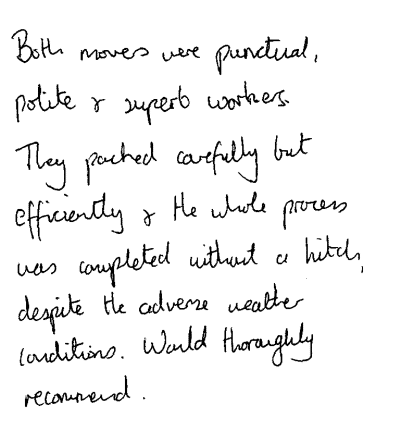 Both movers were punctual,
polite & superb workers.
They packed carefully but
efficiently & the whole process
was completed without a hitch,
despite the adverse weather
conditions. Would thoroughly
recommend.